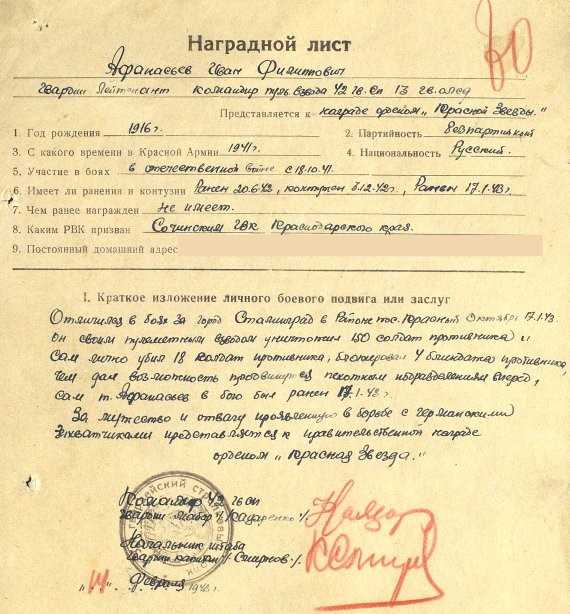 80
Наградной лист
Афанасьев Иван Филиппович
Гвардии Лейтенант командир пуль. взвода 42 гв. сп 13 гв. олсд
Представляется к награде орденом „Красной Звезды."
1. Год рождения 1916 г. 2. Партийность беспартийный
3. С какого времени в Красной Армии 1941 г. 4. Национальность Русский.
5. Участие в боях в отечественной войне с 18.10.41.
6. Имеет ли ранения и контузии Ранен 20.6.42, контужен 5.12.42 г., Ранен 17.1.43 г.
7. Чем ранее награжден не имеет.
8. Каким РВК призван Сочинским ГВК Краснодарского края.
9. Постоянный домашний адрес
I. Краткое изложение личного боевого подвига или заслуг
Отличился в боях за город Сталинград в Районе пос. Красный Октябрь 17.1.43.
он своим пулеметным взводом уничтожил 150 солдат противника,
Сам лично убил 18 солдат противника, блокировал 4 блиндажа противника,
Чем дал возможность продвинуться пехотным подразделениям вперед,
Сам т. Афанасьев в бою был ранен 17.1.43 г.
За мужество и отвагу проявленную в борьбе с германскими
захватчиками представляется к правительственной награде
орденом „Красная Звезда."
Командир 42 гв сп
Гвардии Майор
Начальник штаба
Гвардии капитан /-Смирнов-/
Февраля 1943 г.